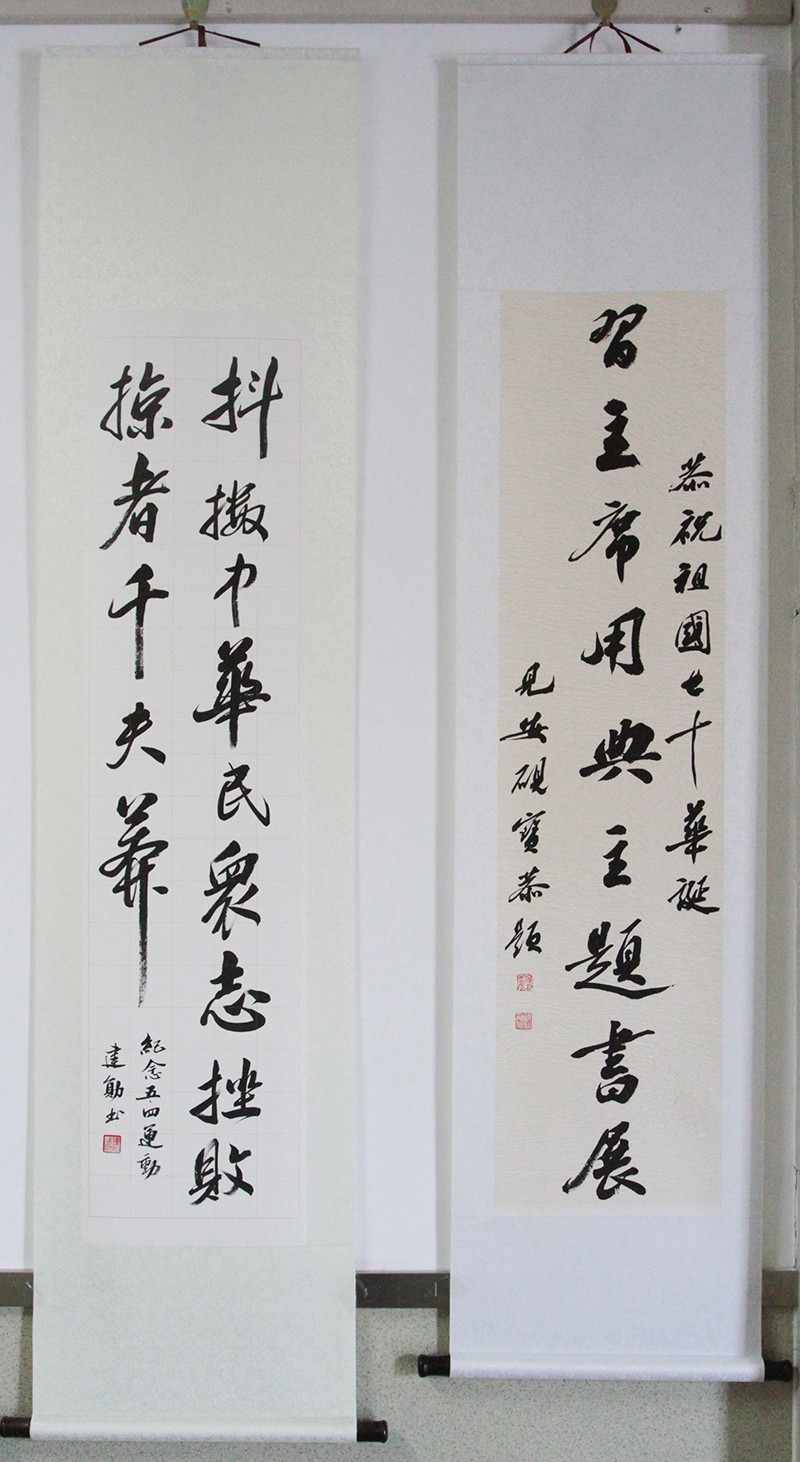 恭祝祖國七十華誕
習主席用典主題書展
見硯寶恭題
抖擻中華民衆志挫敗
掠者千夫莽
紀念五四運動
建勛书